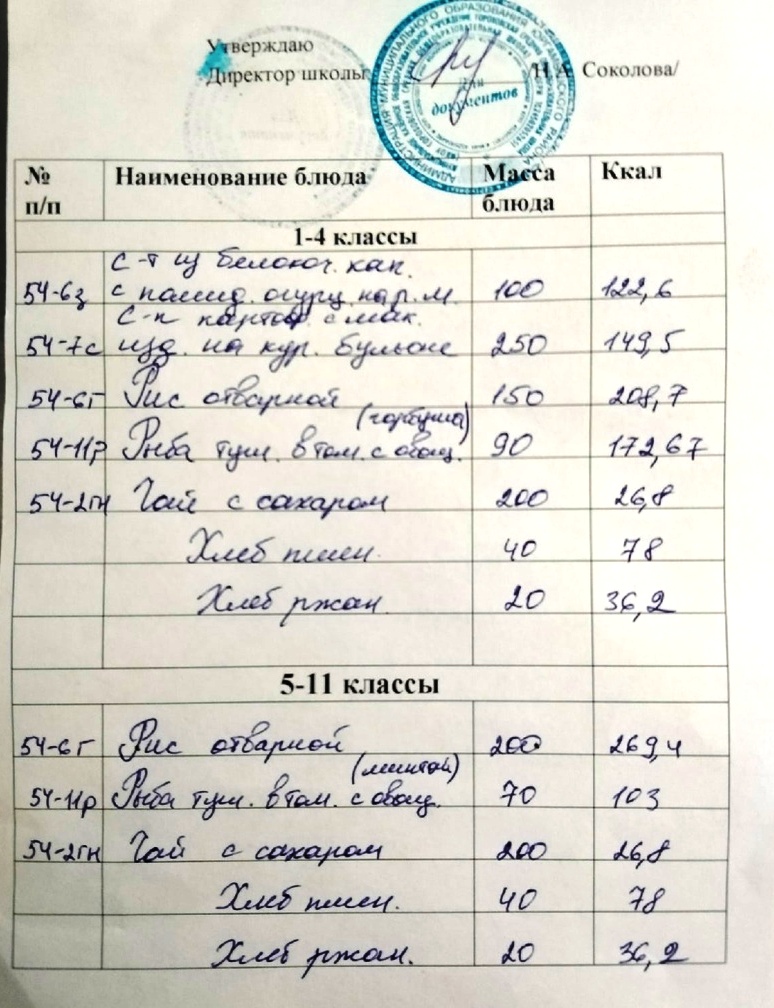 Утверждаю
Директор школы /Н.А. Соколова/
Для
документов
№ п/п Наименование блюда Масса блюда Ккал
1-4 классы
С-т из белокоч. кап.
54-6з с помид. огурц. на р.м. 100 122,6
С-п картоф с мак.
54-7с изд. на кур. бульоне 250 149,5
54-6г Рис отварной 150 208,7
(горбуша)
54-11р Рыба туш. в том. с овощ. 90 172,67
54-2гн Чай с сахаром 200 26,8
Хлеб пшен. 40 78
Хлеб ржан 20 36,2
5-11 классы
54-6г Рис отварной 200 269,4
(минтай)
54-11р Рыба туш. в том. с овощ. 70 103
54-2гн Чай с сахаром 200 26,8
Хлеб пшен. 40 78
Хлеб ржан. 20 36,2